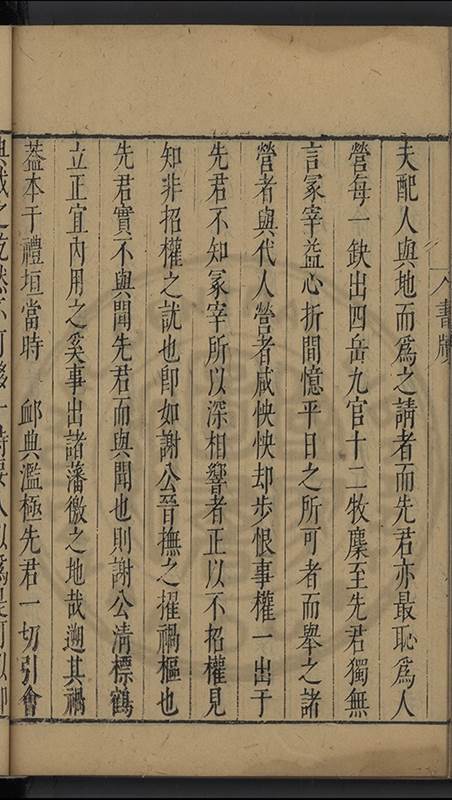 夫配人與地而爲之請者而先君亦最恥爲人
營每一缺出四岳九官十二牧麇至先君獨無
言冡宰益心折間憶平日之所可者而舉之諸
營者與代人營者咸怏怏却步恨事權一出于
先君不知冡宰所以深相嚮者正以不招權見
知非招權之訧也卽如謝公晉撫之擢禍樞也
先君實不與聞先君而與聞也則謝公清標鶴
立正宜內用之奚事出諸藩徼之地哉遡其禍
葢本于禮垣當時 䘏典濫極先君一切引會
典裁之